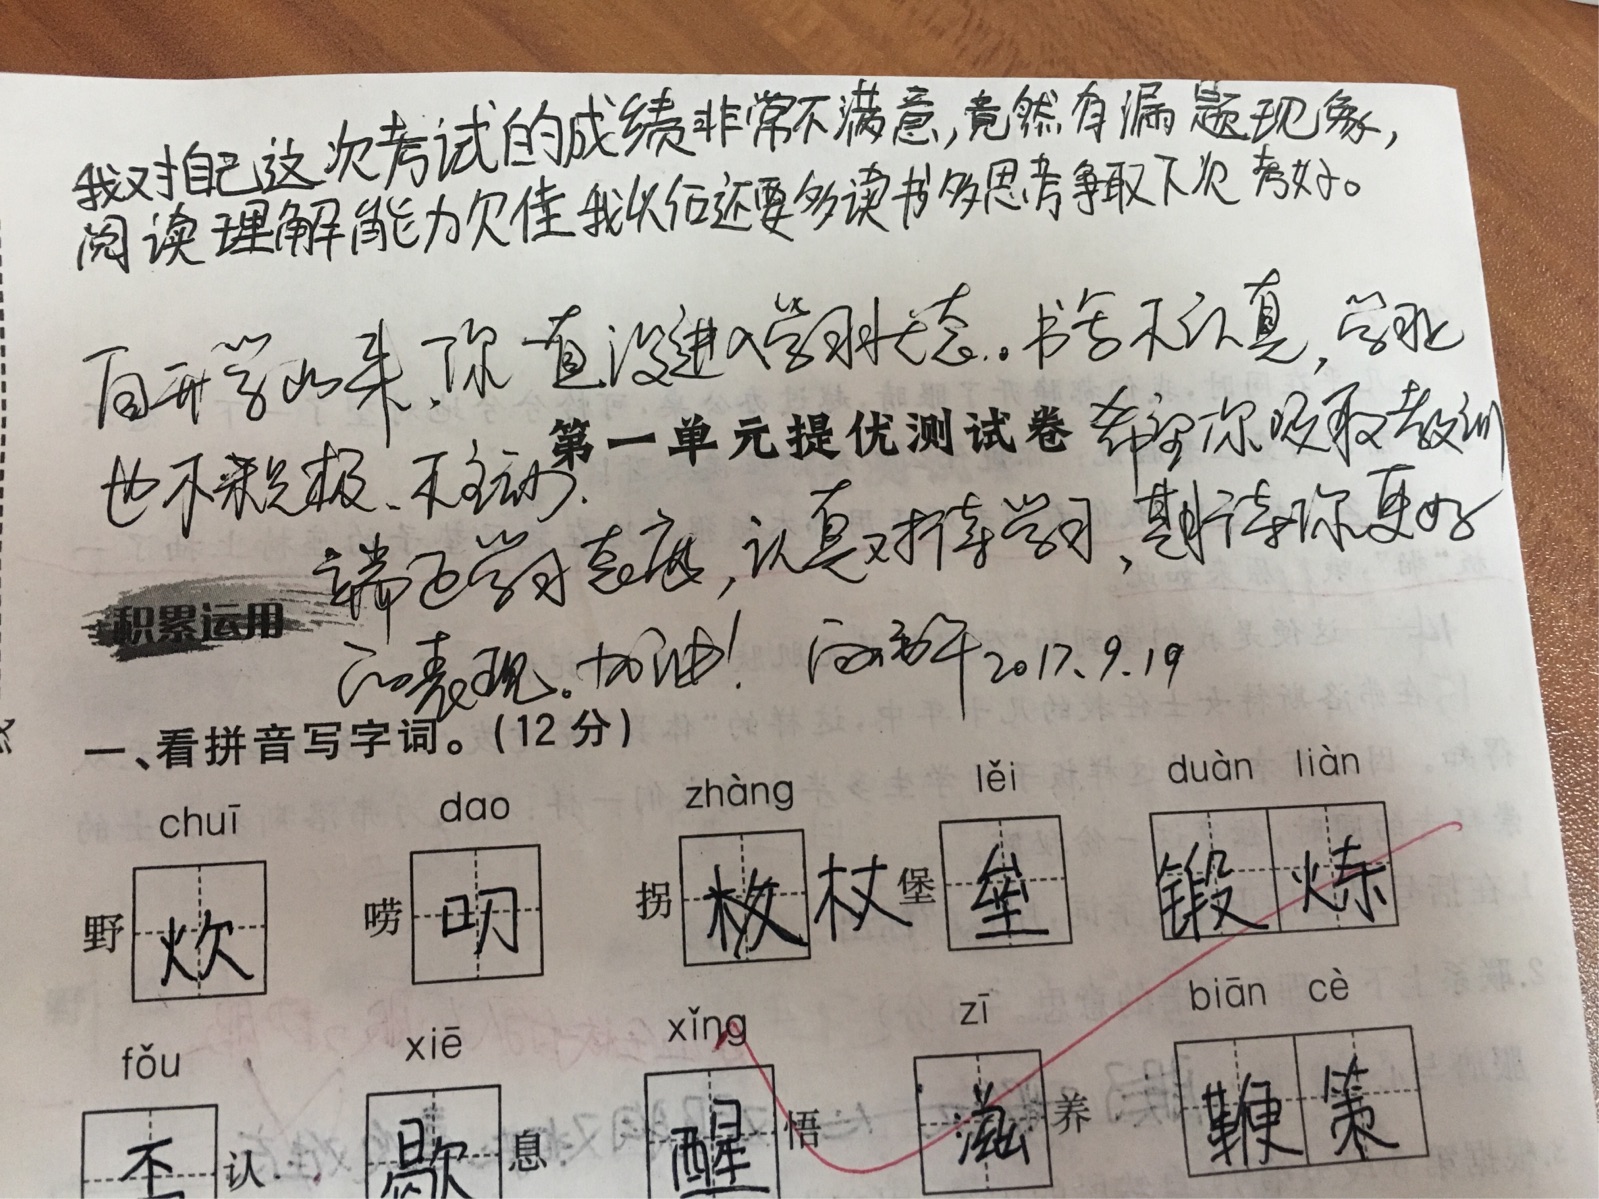 我对自己这次考试的成绩非常不满意,竟然有漏题现象,
阅读理解能力欠佳我以后还要多读书多思考争取下次考好。
自开学以来,你一直没进入学习状态。书写不认真,学习上
也不积极、不主动.
第一单元提优测试卷
希望你吸取教训
端正学习态度,认真对待学习,期待你更好
积累运用
的表现。加油!
2017.9.19
一、看拼音写字词。(12分)
chuī dao zhàng lěi duàn liàn
野炊 唠叨 拐杖 堡垒 锻炼
fǒu xiē xǐng zī biān cè
否认 歇息 醒悟 滋养 鞭策